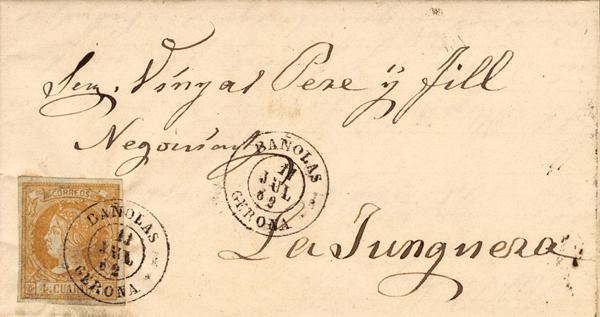 Sres. Vinyas Pere y Jill
Negociant
BAÑOLAS
11
JUL
62
GERONA
La Junquera
CORREOS
BAÑOLAS
11
JUL
62
GERONA
4 CUART